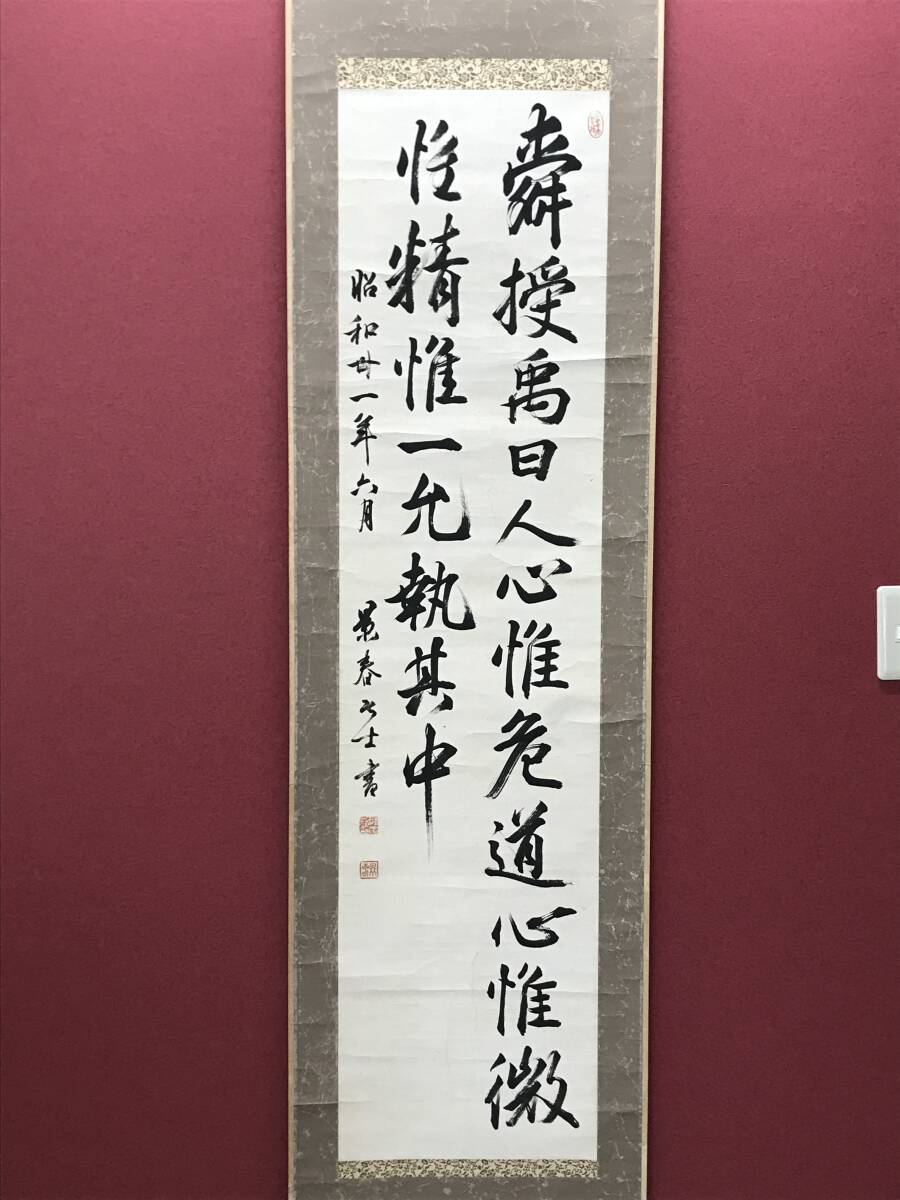 舜授禹曰人心惟危道心惟微
惟精惟一允執其中
昭和廿一年六月 景春居士書